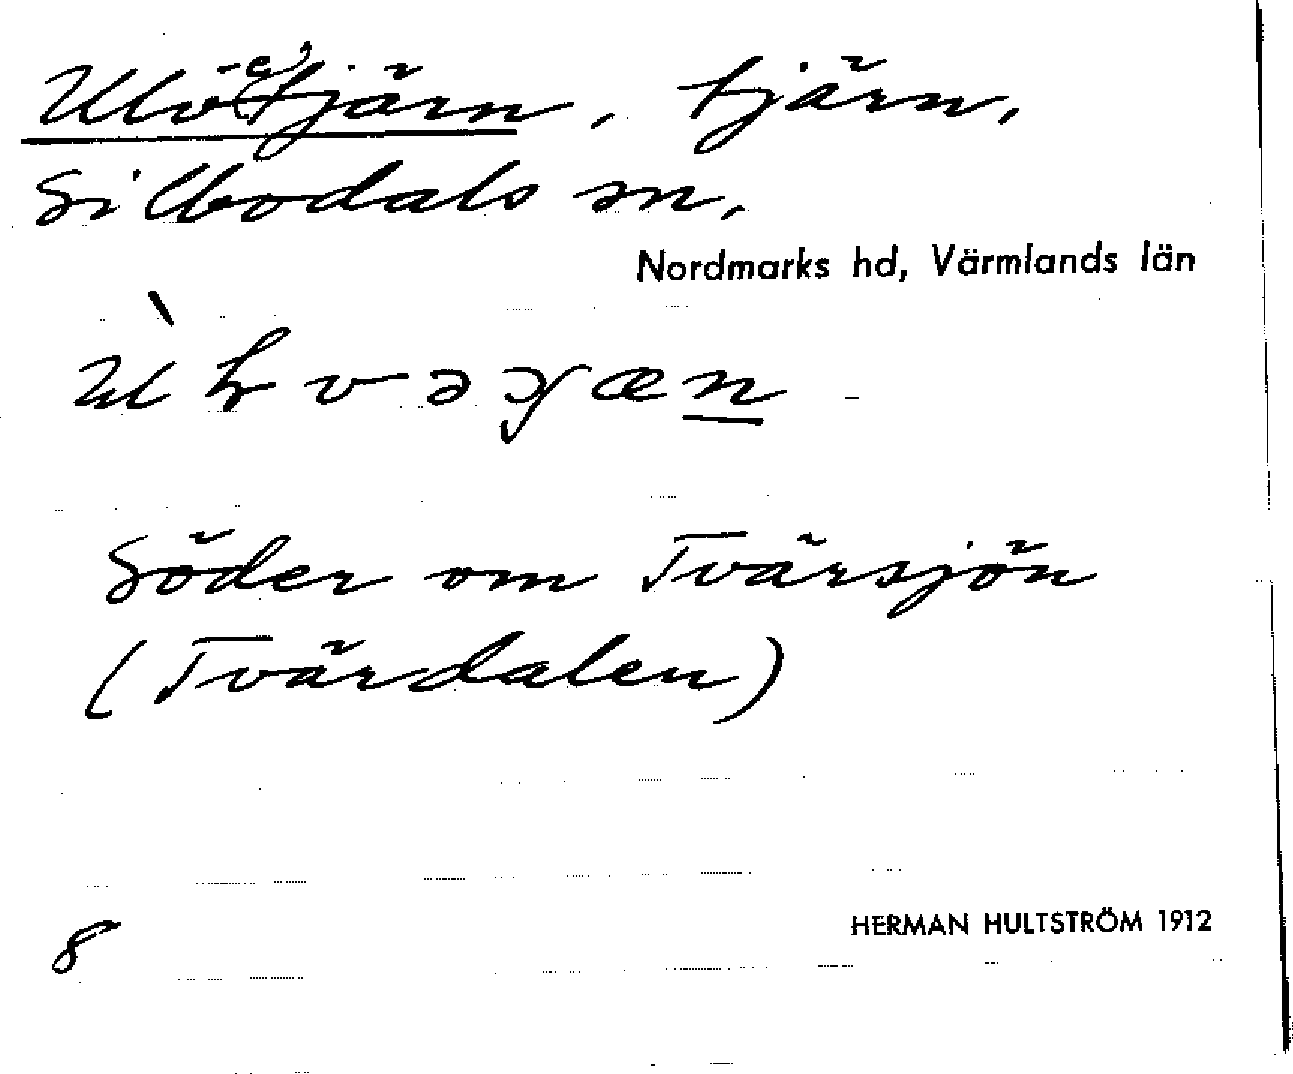 Ulv(e)tjärn, tjärn,
Silbodals sn,
Nordmarks hd, Värmlands län
Söder om Tvärsjön
(Tvärdalen)
8
HERMAN HULTSTRÖM 1912